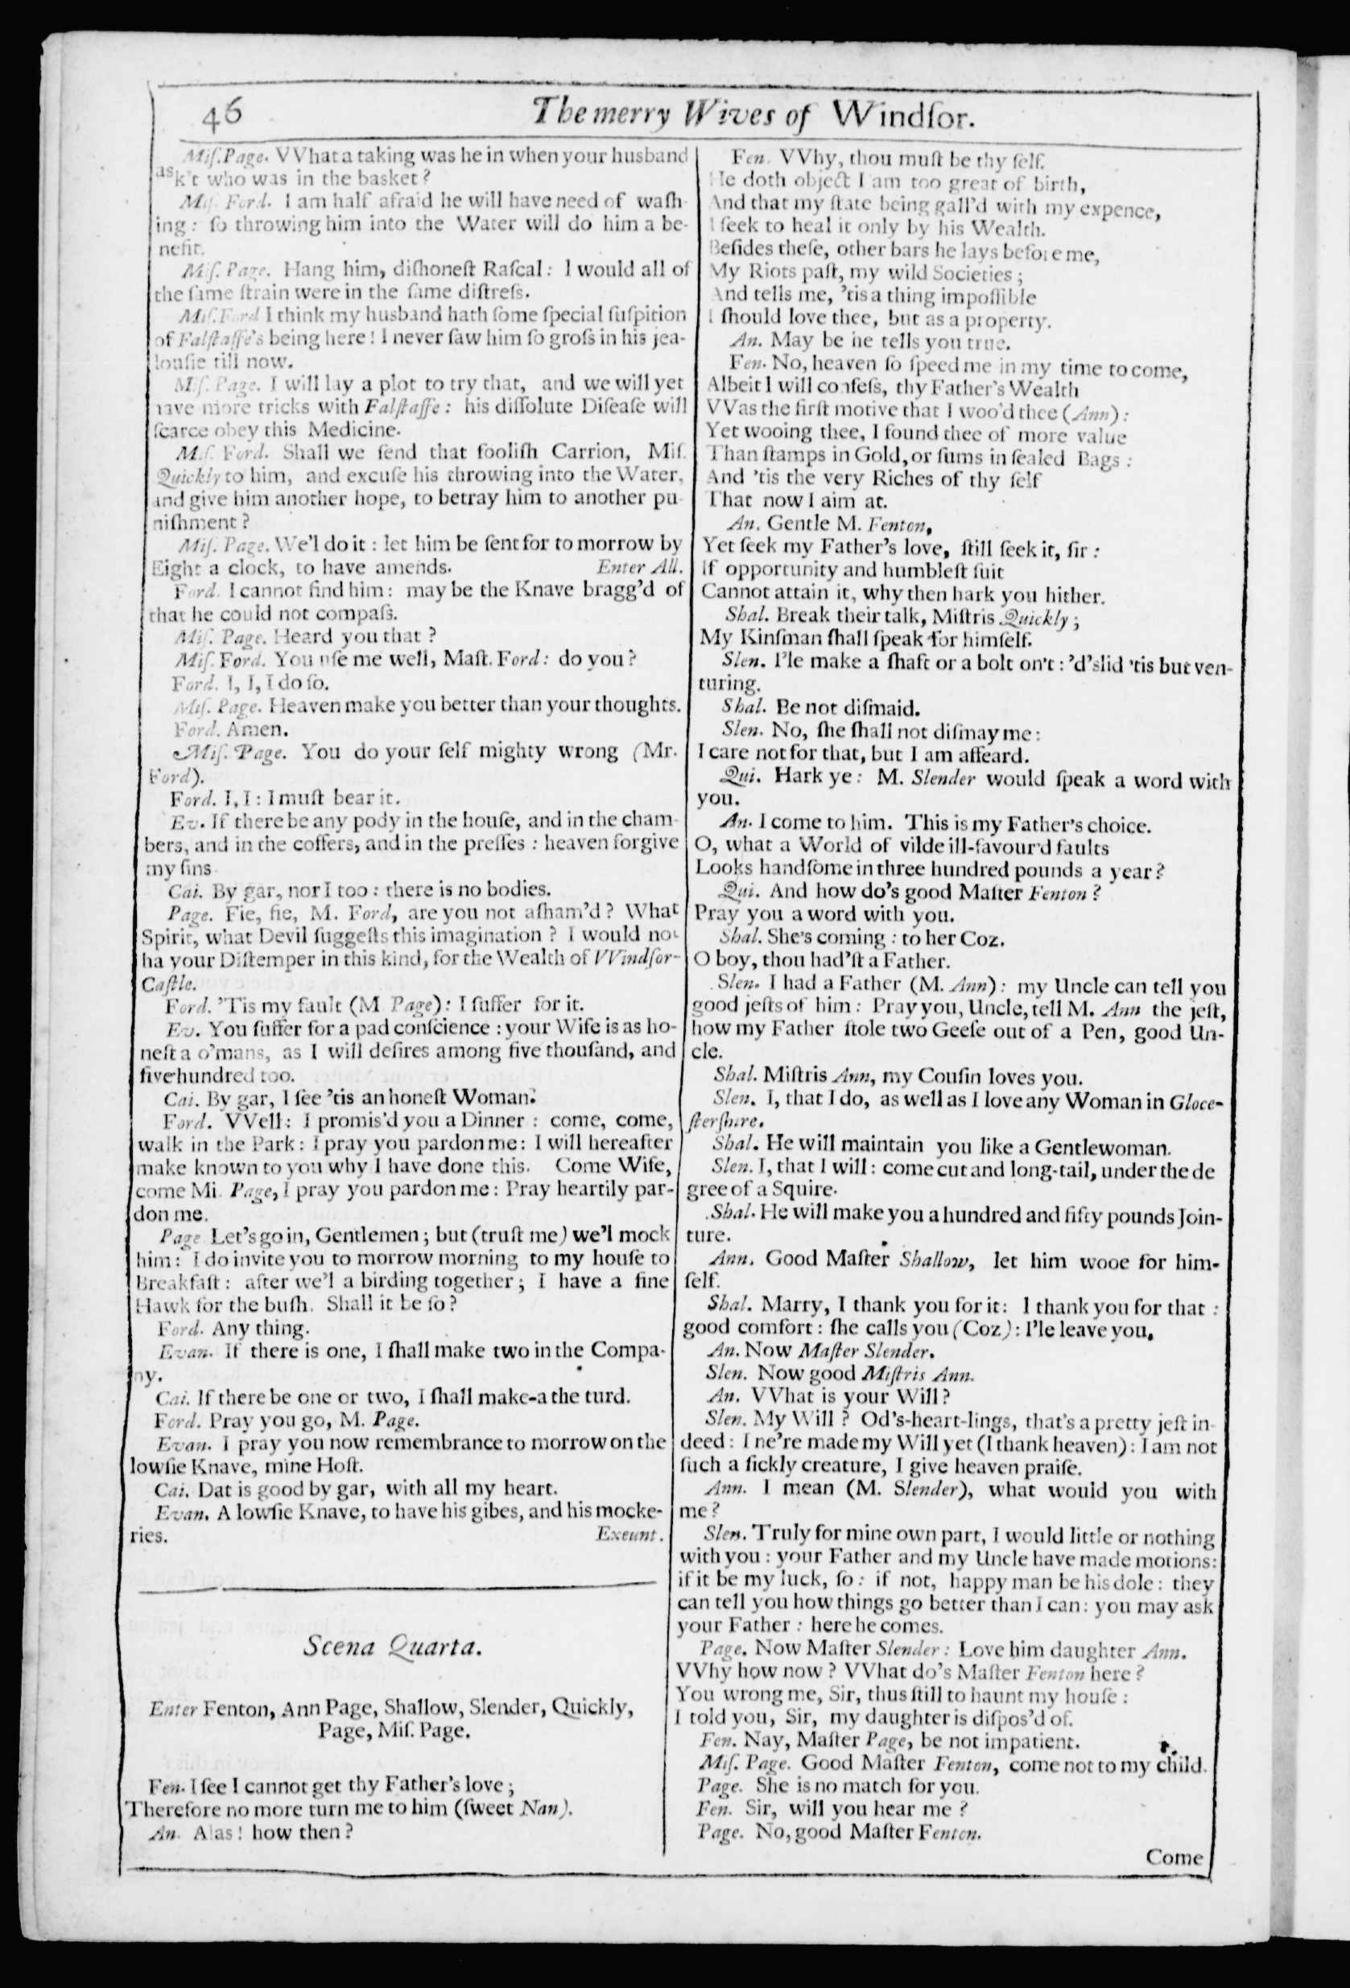 46
The merry Wives of Windſor.
Miſ. Page. VVhat a taking was he in when your husband
ask't who was in the basket?
Miſ. Ford. I am half afraid he will have need of waſh-
ing: ſo throwing him into the Water will do him a be-
nefit.
Miſ. Page. Hang him, diſhoneſt Raſcal: I would all of
the ſame ſtrain were in the ſame diſtreſs.
Miſ. Ford I think my husband hath ſome ſpecial ſuſpition
of Falſtaffe's being here! I never ſaw him ſo groſs in his jea-
louſie till now.
Miſ. Page. I will lay a plot to try that, and we will yet
have more tricks with Falſtaffe: his diſſolute Diſeaſe will
ſcarce obey this Medicine.
Miſ. Ford. Shall we ſend that fooliſh Carrion, Miſ.
Quickly to him, and excuſe his throwing into the Water,
and give him another hope, to betray him to another pu-
niſhment?
Miſ. Page. We'l do it: let him be ſent for to morrow by
Eight a clock, to have amends. Enter All.
Ford. I cannot find him: may be the Knave bragg'd of
that he could not compaſs.
Miſ. Page. Heard you that?
Miſ. Ford. You uſe me well, Maſt. Ford: do you?
Ford. I, I, I do ſo.
Miſ. Page. Heaven make you better than your thoughts.
Ford. Amen.
Miſ. Page. You do your ſelf mighty wrong (Mr.
Ford).
Ford. I, I: I muſt bear it.
Ev. If there be any pody in the houſe, and in the cham-
bers, and in the coffers, and in the preſſes: heaven forgive
my ſins
Cai. By gar, nor I too: there is no bodies.
Page. Fie, fie, M. Ford, are you not aſham'd? What
Spirit, what Devil ſuggeſts this imagination? I would not
ha your Diſtemper in this kind, for the Wealth of VVindſor-
Caſtle.
Ford. 'Tis my fault (M Page): I ſuffer for it.
Ev. You ſuffer for a pad conſcience: your Wife is as ho-
neſt a o'mans, as I will deſires among five thouſand, and
five hundred too.
Cai. By gar, I ſee 'tis an honeſt Woman.
Ford. VVell: I promis'd you a Dinner: come, come,
walk in the Park: I pray you pardon me: I will hereafter
make known to you why I have done this. Come Wife,
come Mi. Page, I pray you pardon me: Pray heartily par-
don me.
Page Let's go in, Gentlemen; but (truſt me) we'l mock
him: I do invite you to morrow morning to my houſe to
Breakfaſt: after we'l a birding together; I have a fine
Hawk for the buſh. Shall it be ſo?
Ford. Any thing.
Evan. If there is one, I ſhall make two in the Compa-
ny.
Cai. If there be one or two, I ſhall make-a the turd.
Ford. Pray you go, M. Page.
Evan. I pray you now remembrance to morrow on the
lowſie Knave, mine Hoſt.
Cai. Dat is good by gar, with all my heart.
Evan. A lowſie Knave, to have his gibes, and his mocke-
ries. Exeunt.
Scena Quarta.
Enter Fenton, Ann Page, Shallow, Slender, Quickly,
Page, Miſ. Page.
Fen. I ſee I cannot get thy Father's love;
Therefore no more turn me to him (ſweet Nan).
An. Alas! how then?
Fen. VVhy, thou muſt be thy ſelf.
He doth object I am too great of birth,
And that my ſtate being gall'd with my expence,
I ſeek to heal it only by his Wealth.
Beſides theſe, other bars he lays before me,
My Riots paſt, my wild Societies;
And tells me, 'tis a thing impoſſible
I ſhould love thee, but as a property.
An. May be he tells you true.
Fen. No, heaven ſo ſpeed me in my time to come,
Albeit I will confeſs, thy Father's Wealth
VVas the firſt motive that I woo'd thee (Ann):
Yet wooing thee, I found thee of more value
Than ſtamps in Gold, or ſums in ſealed Bags:
And 'tis the very Riches of thy ſelf
That now I aim at.
An. Gentle M. Fenton,
Yet ſeek my Father's love, ſtill ſeek it, ſir:
If opportunity and humbleſt ſuit
Cannot attain it, why then hark you hither.
Shal. Break their talk, Miſtris Quickly;
My Kinſman ſhall ſpeak for himſelf.
Slen. I'le make a ſhaft or a bolt on't: 'd'slid 'tis but ven-
turing.
Shal. Be not diſmaid.
Slen. No, ſhe ſhall not diſmay me:
I care not for that, but I am affeard.
Qui. Hark ye: M. Slender would ſpeak a word with
you.
An. I come to him. This is my Father's choice.
O, what a World of vilde ill-favour'd faults
Looks handſome in three hundred pounds a year?
Qui. And how do's good Maſter Fenton?
Pray you a word with you.
Shal. She's coming: to her Coz.
O boy, thou had'ſt a Father.
Slen. I had a Father (M. Ann): my Uncle can tell you
good jeſts of him: Pray you, Uncle, tell M. Ann the jeſt,
how my Father ſtole two Geeſe out of a Pen, good Un-
cle.
Shal. Miſtris Ann, my Couſin loves you.
Slen. I, that I do, as well as I love any Woman in Gloce-
ſterſhire.
Shal. He will maintain you like a Gentlewoman.
Slen. I, that I will: come cut and long-tail, under the de
gree of a Squire.
Shal. He will make you a hundred and fifty pounds Join-
ture.
Ann. Good Maſter Shallow, let him wooe for him-
ſelf.
Shal. Marry, I thank you for it: I thank you for that:
good comfort: ſhe calls you (Coz): I'le leave you.
An. Now Maſter Slender.
Slen. Now good Miſtris Ann.
An. VVhat is your Will?
Slen. My Will? Od's-heart-lings, that's a pretty jeſt in-
deed: I ne're made my Will yet (I thank heaven): I am not
ſuch a ſickly creature, I give heaven praiſe.
Ann. I mean (M. Slender), what would you with
me?
Slen. Truly for mine own part, I would little or nothing
with you: your Father and my Uncle have made motions:
if it be my luck, ſo: if not, happy man be his dole: they
can tell you how things go better than I can: you may ask
your Father: here he comes.
Page. Now Maſter Slender: Love him daughter Ann.
VVhy how now? VVhat do's Maſter Fenton here?
You wrong me, Sir, thus ſtill to haunt my houſe:
I told you, Sir, my daughter is diſpos'd of.
Fen. Nay, Maſter Page, be not impatient.
Miſ. Page. Good Maſter Fenton, come not to my child.
Page. She is no match for you.
Fen. Sir, will you hear me?
Page. No, good Maſter Fenton.
Come